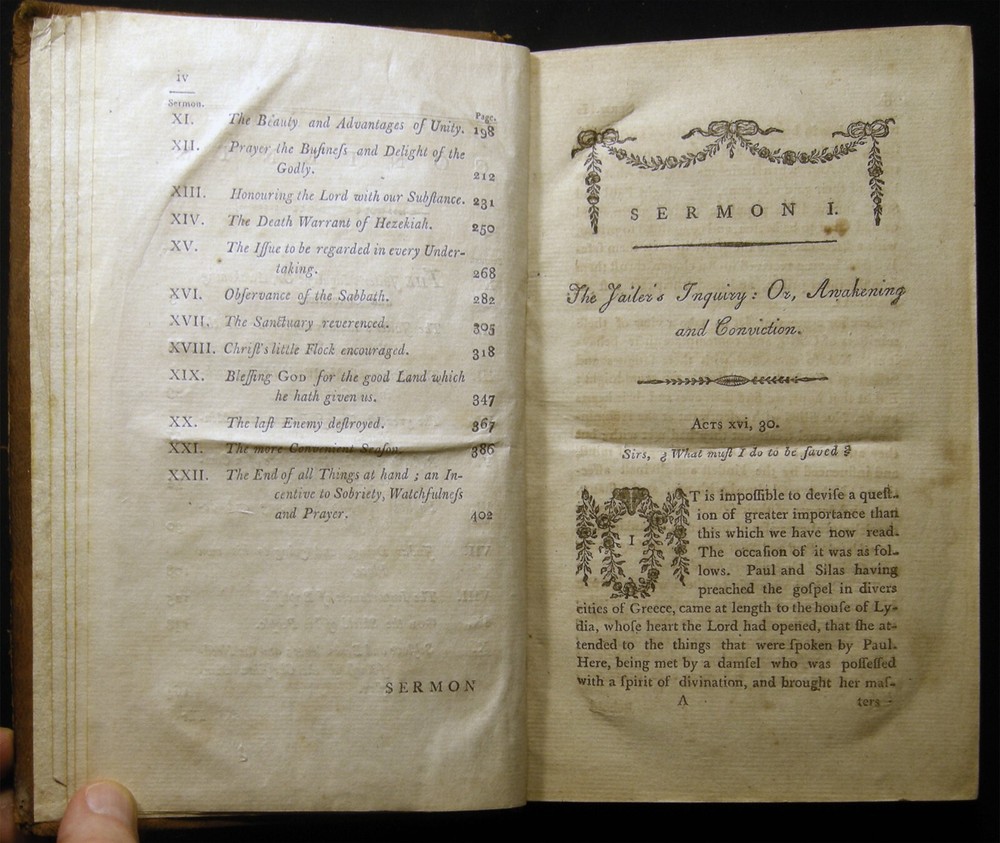 iv
Sermon. Page.
XI. The Beauty and Advantages of Unity. 198
XII. Prayer the Buſineſs and Delight of the
Godly. 212
XIII. Honouring the Lord with our Subſtance. 231
XIV. The Death Warrant of Hezekiah. 250
XV. The Iſſue to be regarded in every Under-
taking. 268
XVI. Obſervance of the Sabbath. 282
XVII. The Sanctuary reverenced. 305
XVIII. Chriſt's little Flock encouraged. 318
XIX. Bleſſing GOD for the good Land which
he hath given us. 347
XX. The laſt Enemy deſtroyed. 367
XXI. The more Convenient Seaſon. 386
XXII. The End of all Things at hand ; an In-
centive to Sobriety, Watchfulneſs
and Prayer. 402
SERMON
SERMON I.
The Jailer's Inquiry: Or, Awakening
and Conviction.
ACTS xvi, 30.
Sirs, ¿ What muſt I do to be ſaved ?
IT is impoſſible to deviſe a queſt-
ion of greater importance than
this which we have now read.
The occaſion of it was as fol-
lows. Paul and Silas having
preached the goſpel in divers
cities of Greece, came at length to the houſe of Ly-
dia, whoſe heart the Lord had opened, that ſhe at-
tended to the things that were ſpoken by Paul.
Here, being met by a damſel who was poſſeſſed
with a ſpirit of divination, and brought her maſ-
A ters